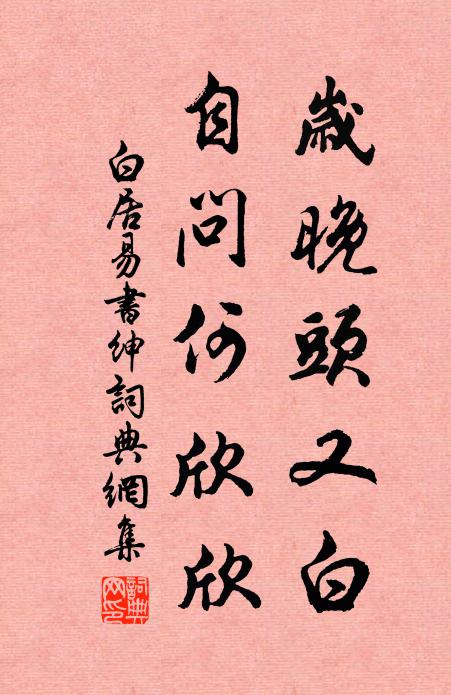 歲晚頭又白
自問何欣欣
白居易書紳詞典網集
詞典網印